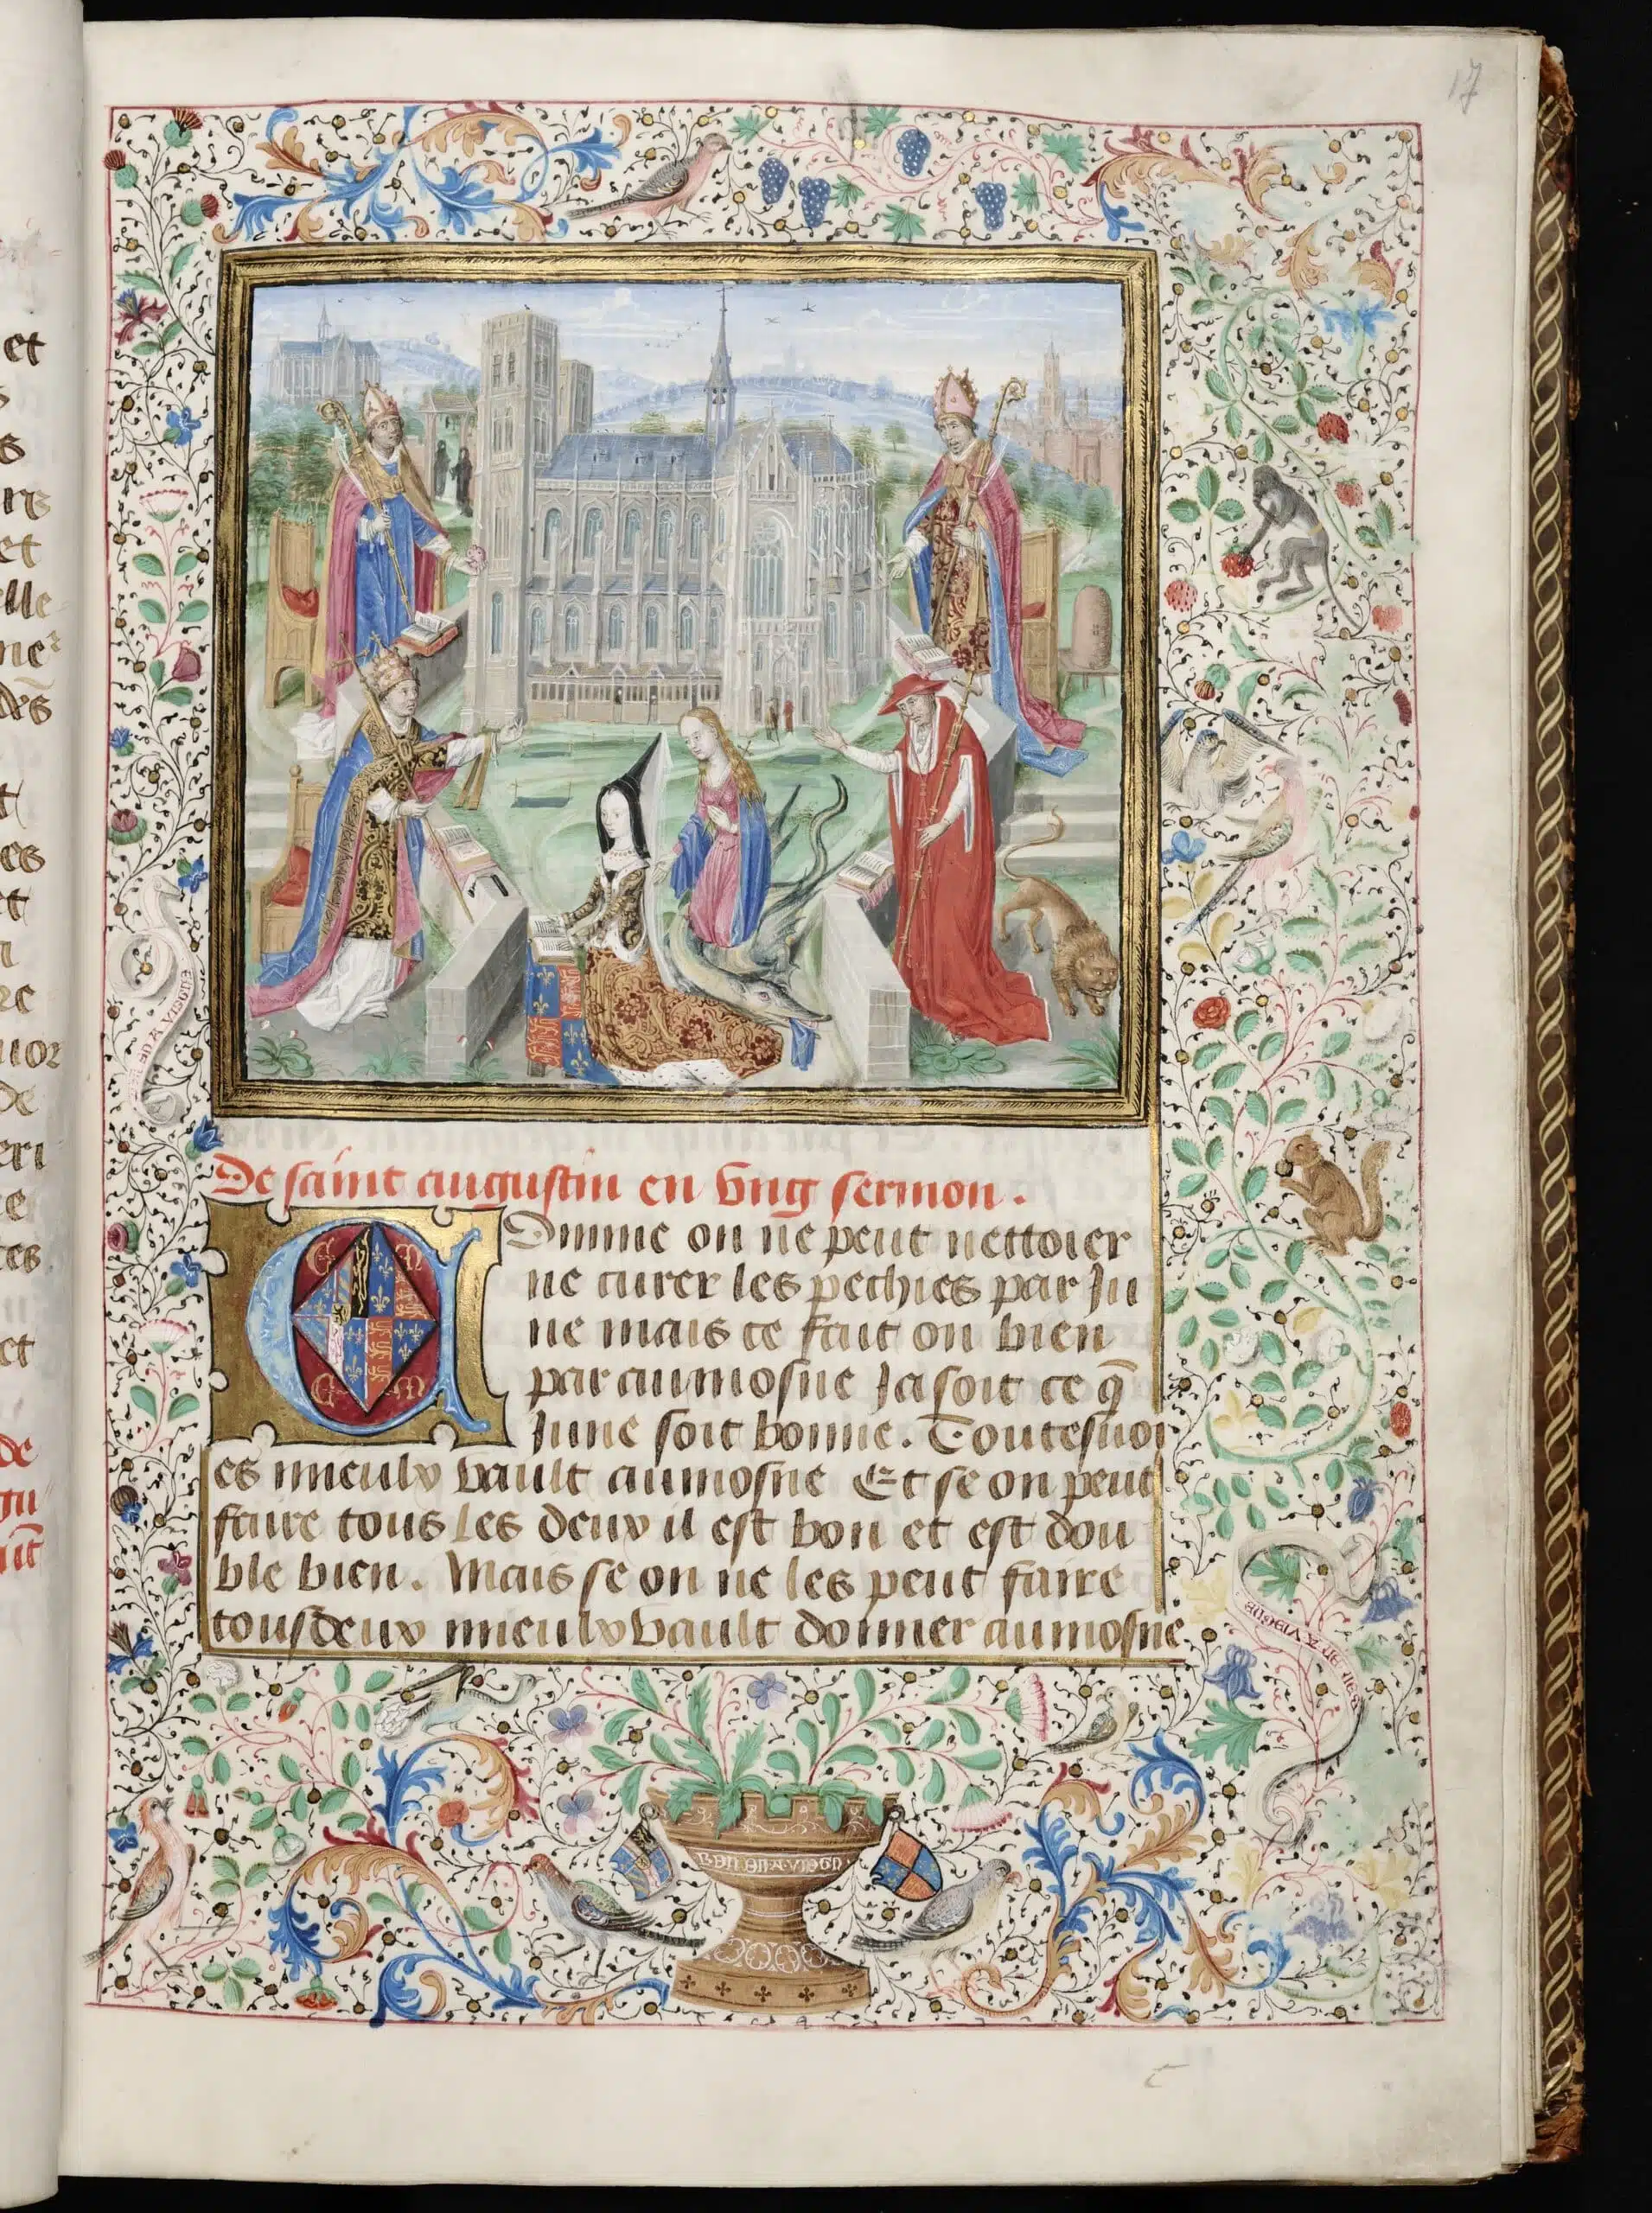 17
De saint augustin en ung sermon.
Comme on ne peut nettoier
ne curer les pechies par Ju
ne mais ce fait on bien
par aumosne Ja soit ce q̄
June soit bonne. Toutesuoi
es mieulx vault aumosne Et se on peut
faire tous les deux il est bon et est dou
ble bien. Mais se on ne les peut faire
tous deux mieulx vault donner aumosne
et
s
et
elle
des
es
et
n
de
eri
e
tes
et
de
gu
BEN EN AVIEGNE